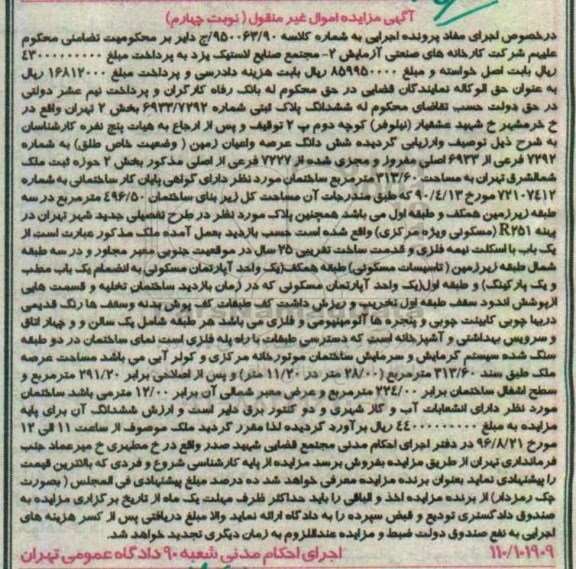 آگهی مزایده اموال غیر منقول ( نوبت چهارم)
درخصوص اجرای مفاد پرونده اجرایی به شماره کلاسه ۹۵۰۰۶۳/۹۰/ج دایر بر محکومیت تضامنی محکوم
علیهم شرکت کارخانه های صنعتی آزمایش ۲- مجتمع صنایع لاستیک یزد به پرداخت مبلغ ۴۳۰۰۰۰۰۰۰۰۰
ریال بابت اصل خواسته و مبلغ ۸۵۹۹۵۰۰۰۰ ریال بابت هزینه دادرسی و پرداخت مبلغ ۱۶۸۱۲۰۰۰ ریال
به عنوان حق الوکاله نمایندگان قضایی در حق محکوم له بانک رفاه کارگران و پرداخت نیم عشر دولتی
در حق دولت حسب تقاضای محکوم له ششدانگ پلاک ثبتی شماره ۶۹۳۳/۷۲۹۲ بخش ۲ تهران واقع در
خ خرمشهر خ شهید عشقیار (نیلوفر) کوچه دوم پ ۲ توقیف و پس از ارجاع به هیات پنج نفره کارشناسان
به شرح ذیل توصیف وارزیابی گردیده شش دانگ عرصه واعیان زمین ( وضعیت خاص طلق) به شماره
۷۲۹۲ فرعی از ۶۹۳۳ اصلی مفروز و مجزی شده از ۷۲۲۷ فرعی از اصلی مذکور بخش ۲ حوزه ثبت ملک
شمالشرق تهران به مساحت ۳۱۳/۶۰ مترمربع ساختمان مورد نظر دارای گواهی پایان کار ساختمانی به شماره
۷۲۱۰۷۴۱۲ مورخ ۹۰/۴/۱۳ که طبق مندرجات آن مساحت کل زیر بنای ساختمان ۴۹۶/۵۰ مترمربع در سه
طبقه زیرزمین همکف و طبقه اول می باشد همچنین پلاک مورد نظر در طرح تفصیلی جدید شهر تهران در
پهنه R۲۵۱ (مسکونی ویژه مرکزی) واقع شده است حسب بازدید بعمل آمده ملک مذکور عبارت است از
یک باب با اسکلت نیمه فلزی و قدمت ساخت تقریبی ۲۵ سال در موقعیت جنوبی معبر مجاور و در سه طبقه
شمال طبقه زیرزمین ( تاسیسات مسکونی) طبقه همکف(یک واحد آپارتمان مسکونی به انضمام یک باب مطب
و یک پارکینگ) و طبقه اول(یک واحد آپارتمان مسکونی که در زمان بازدید ساختمان تخلیه و قسمت هایی
ازپوشش اندود سقف طبقه اول تخریب و ریزش داشت کف طبقات کف پوش بدنه وسقف ها رنگ قدیمی
دربها چوبی کابینت چوبی و پنجره ها آلومینیومی و فلزی می باشد هر طبقه شامل یک سالن و و چهار اتاق
و سرویس بهداشتی و آشپزخانه است که دسترسی طبقات با راه پله فلزی است نمای ساختمان در دو طبقه
سنگ شده سیستم گرمایش و سرمایش ساختمان موتورخانه مرکزی و کولر آبی می باشد مساحت عرصه
ملک طبق سند ۳۱۳/۶۰ مترمربع (۲۸/۰۰ متر در ۱۱/۲۰ متر) و پس از اصلاحی برابر ۲۹۱/۲۰ مترمربع و
سطح اشغال ساختمان برابر ۲۲۴/۰۰ مترمربع و عرض معبر شمالی آن برابر ۱۲/۰۰ مترمی باشد ساختمان
مورد نظر دارای انشعابات آب و گاز شهری و دو کنتور برق دایر است و ارزش ششدانگ آن برای پایه
مزایده به مبلغ ۴۴۰۰۰۰۰۰۰۰۰ ریال برآورد گردیده لذا مقرر گردید ملک موصوف از ساعت ۱۱ الی ۱۲
مورخ ۹۶/۸/۲۱ در دفتر اجرای احکام مدنی مجتمع قضایی شهید صدر واقع در خ مطهری خ میرعماد جنب
فرمانداری تهران از طریق مزایده بفروش برسد مزایده از پایه کارشناسی شروع و فردی که بالاترین قیمت
را پیشنهادی نماید بعنوان برنده مزایده معرفی خواهد شد ده درصد مبلغ پیشنهادی فی المجلس ( بصورت
چک رمزدار) از برنده مزایده اخذ و الباقی را باید حداکثر ظرف مهلت یک ماه از تاریخ برگزاری مزایده به
صندوق دادگستری تودیع و قبض سپرده را به دادگاه ارائه نماید والا مبلغ دریافتی پس از کسر هزینه های
اجرایی به نفع صندوق دولت ضبط و مزایده عنداللزوم به زمان دیگری تجدید خواهد شد.
۱۱۰/۱۰۱۹۰۹ اجرای احکام مدنی شعبه ۹۰ دادگاه عمومی تهران